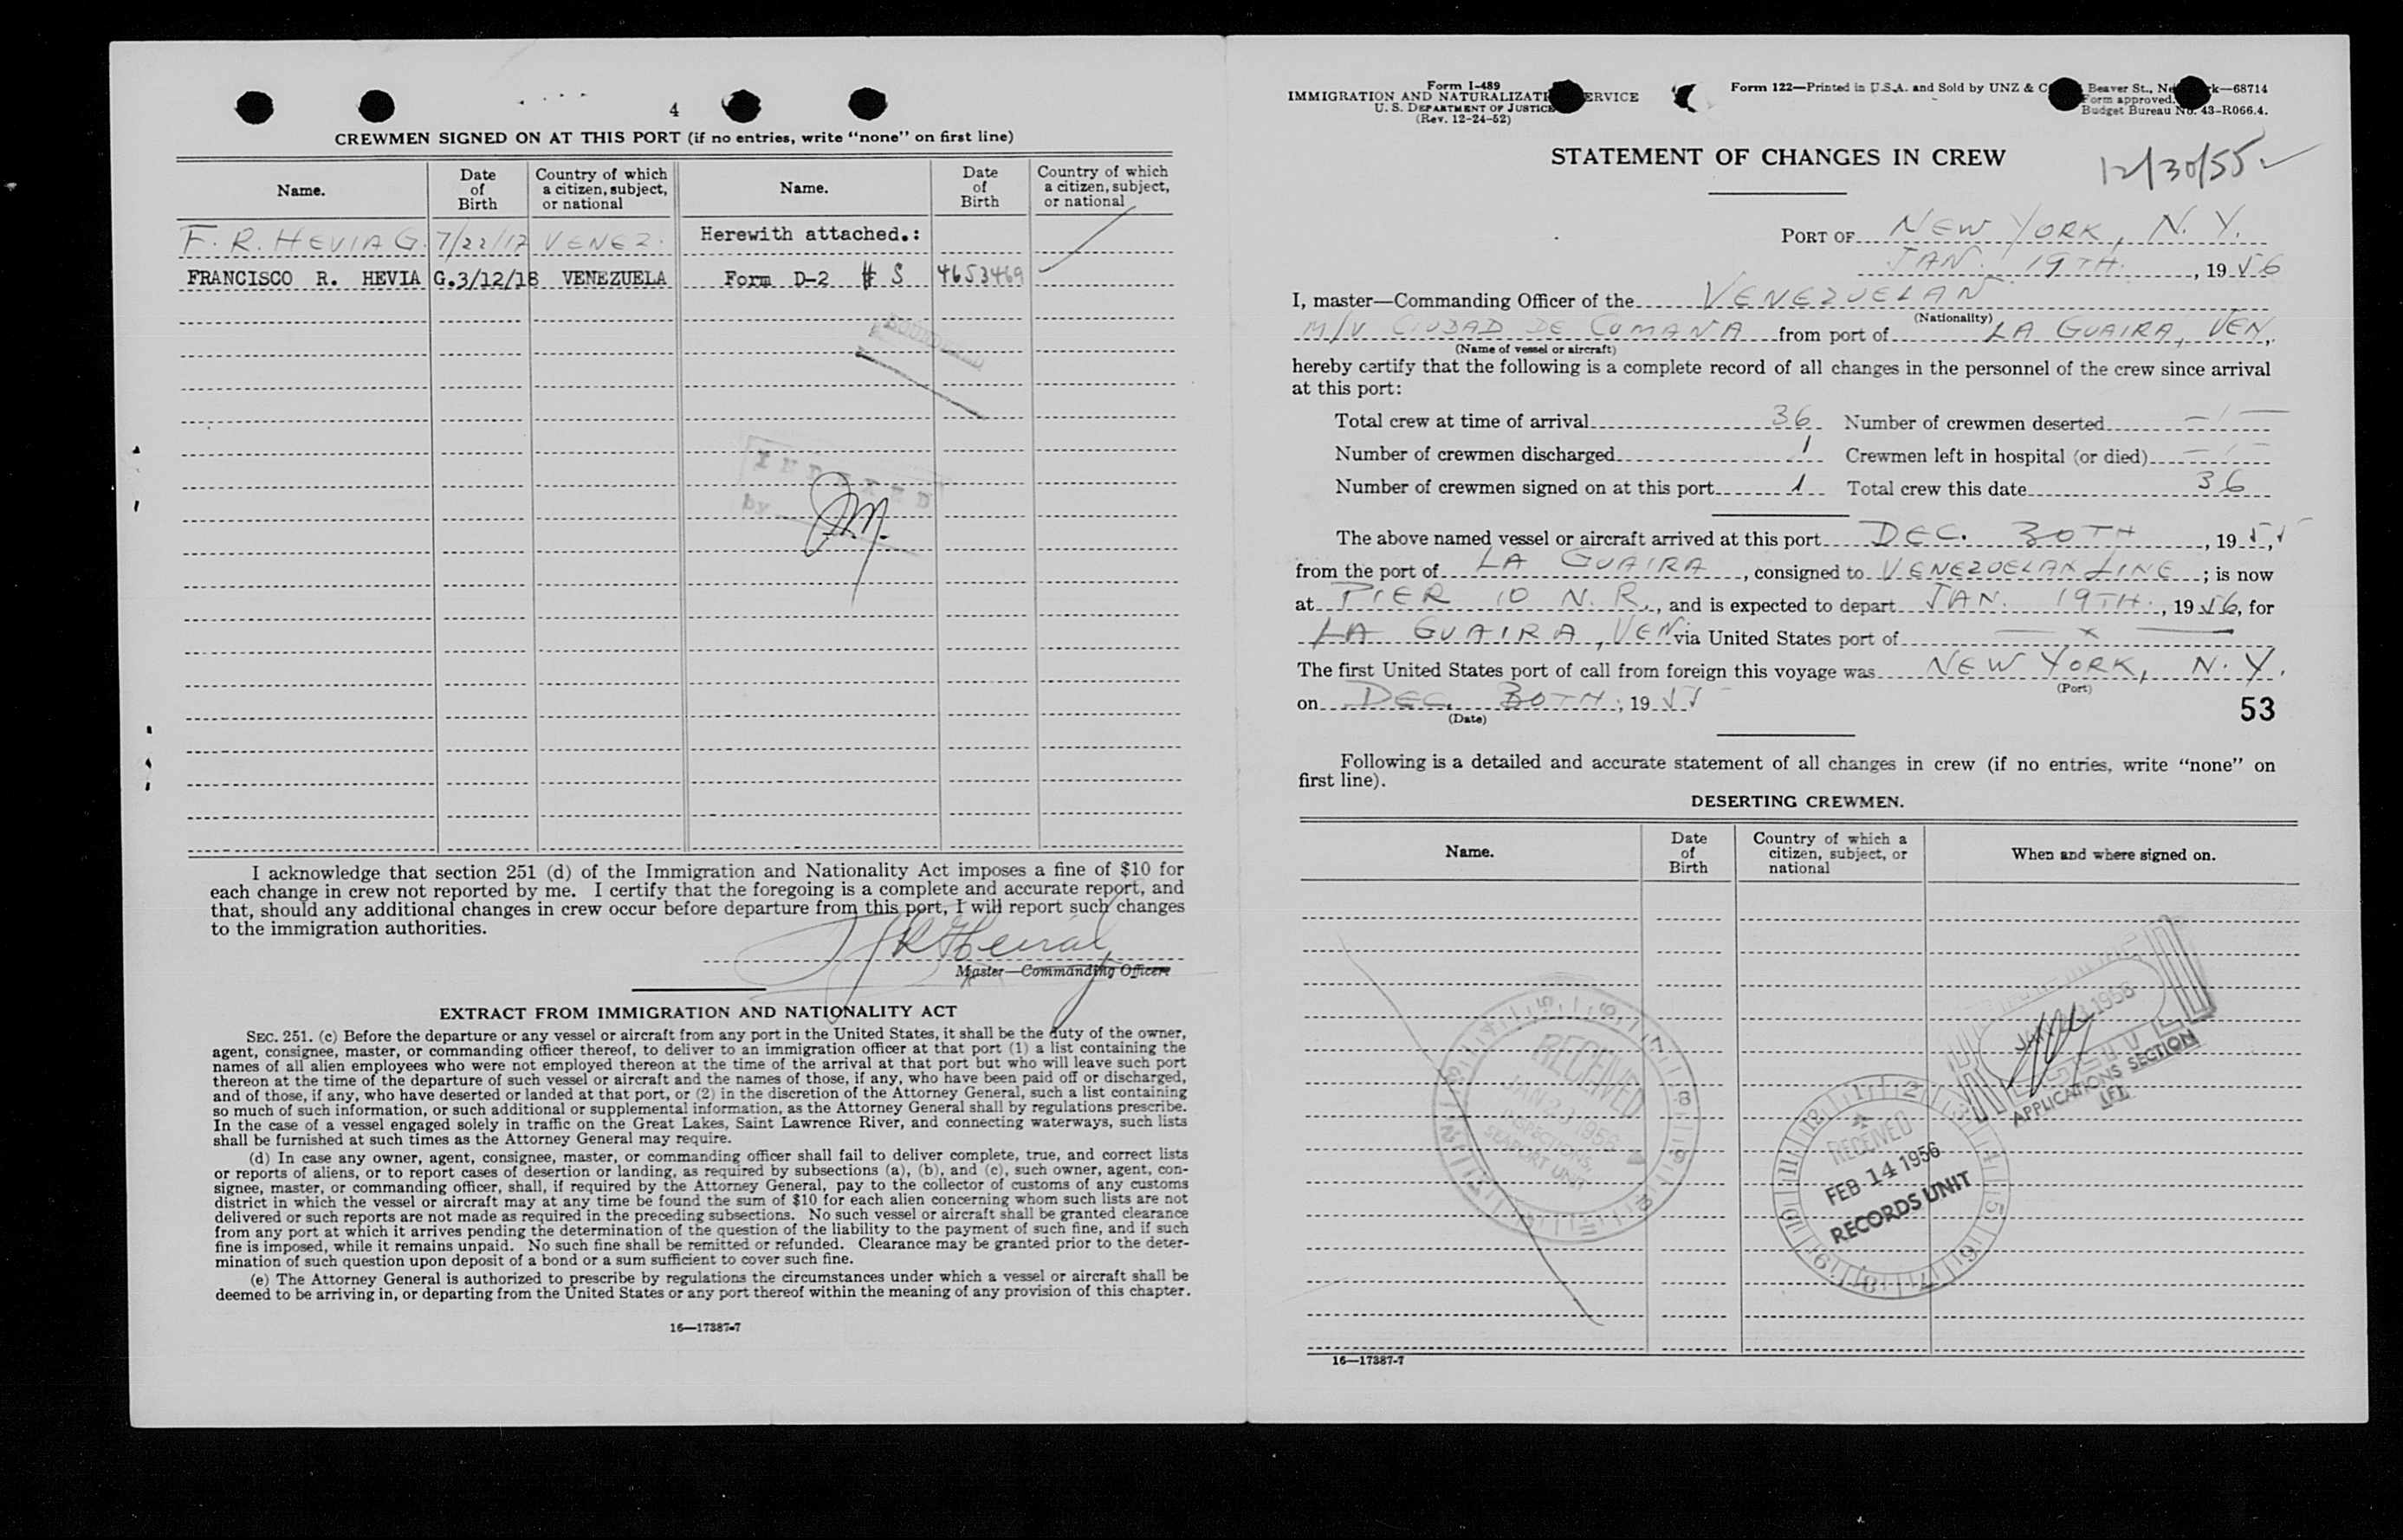 4
CREWMEN SIGNED ON AT THIS PORT (if no entries, write “none” on first line)
Name. Date of Birth Country of which a citizen, subject, or national Name. Date of Birth Country of which a citizen, subject, or national
F. R. HEVIA G. 7/22/17 VENEZ. Herewith attached.:
FRANCISCO R. HEVIA G. 3/12/18 VENEZUELA Form D-2 # S 4653469
INDEXED
by
I acknowledge that section 251 (d) of the Immigration and Nationality Act imposes a fine of $10 for
each change in crew not reported by me. I certify that the foregoing is a complete and accurate report, and
that, should any additional changes in crew occur before departure from this port, I will report such changes
to the immigration authorities.
Master—Commanding Officer
EXTRACT FROM IMMIGRATION AND NATIONALITY ACT
SEC. 251. (c) Before the departure or any vessel or aircraft from any port in the United States, it shall be the duty of the owner,
agent, consignee, master, or commanding officer thereof, to deliver to an immigration officer at that port (1) a list containing the
names of all alien employees who were not employed thereon at the time of the arrival at that port but who will leave such port
thereon at the time of the departure of such vessel or aircraft and the names of those, if any, who have been paid off or discharged,
and of those, if any, who have deserted or landed at that port, or (2) in the discretion of the Attorney General, such a list containing
so much of such information, or such additional or supplemental information, as the Attorney General shall by regulations prescribe.
In the case of a vessel engaged solely in traffic on the Great Lakes, Saint Lawrence River, and connecting waterways, such lists
shall be furnished at such times as the Attorney General may require.
(d) In case any owner, agent, consignee, master, or commanding officer shall fail to deliver complete, true, and correct lists
or reports of aliens, or to report cases of desertion or landing, as required by subsections (a), (b), and (c), such owner, agent, con-
signee, master, or commanding officer, shall, if required by the Attorney General, pay to the collector of customs of any customs
district in which the vessel or aircraft may at any time be found the sum of $10 for each alien concerning whom such lists are not
delivered or such reports are not made as required in the preceding subsections. No such vessel or aircraft shall be granted clearance
from any port at which it arrives pending the determination of the question of the liability to the payment of such fine, and if such
fine is imposed, while it remains unpaid. No such fine shall be remitted or refunded. Clearance may be granted prior to the deter-
mination of such question upon deposit of a bond or a sum sufficient to cover such fine.
(e) The Attorney General is authorized to prescribe by regulations the circumstances under which a vessel or aircraft shall be
deemed to be arriving in, or departing from the United States or any port thereof within the meaning of any provision of this chapter.
16—17387-7
Form I-489
IMMIGRATION AND NATURALIZATI ERVICE
U. S. DEPARTMENT OF JUSTICE
(Rev. 12-24-52)
Form 122—Printed in U.S.A. and Sold by UNZ & C Beaver St., Ne k—68714
Form approved.
Budget Bureau No. 43-R066.4.
STATEMENT OF CHANGES IN CREW
12/30/55
PORT OF NEW YORK, N. Y.
JAN. 19TH., 1956
I, master—Commanding Officer of the VENEZUELAN
(Nationality)
M/V CIUDAD DE CUMANA from port of LA GUAIRA, VEN,
(Name of vessel or aircraft)
hereby certify that the following is a complete record of all changes in the personnel of the crew since arrival
at this port:
Total crew at time of arrival 36 Number of crewmen deserted — / —
Number of crewmen discharged 1 Crewmen left in hospital (or died) — / —
Number of crewmen signed on at this port 1 Total crew this date 36
The above named vessel or aircraft arrived at this port DEC. 30TH, 1955,
from the port of LA GUAIRA, consigned to VENEZUELAN LINE; is now
at PIER 10 N. R., and is expected to depart JAN. 19TH., 1956, for
LA GUAIRA, VEN via United States port of — x —
The first United States port of call from foreign this voyage was NEW YORK, N. Y.
(Port)
on DEC. 30TH, 1955
(Date)
53
Following is a detailed and accurate statement of all changes in crew (if no entries, write “none” on
first line).
DESERTING CREWMEN.
Name. Date of Birth Country of which a citizen, subject, or national When and where signed on.
RECEIVED
JAN 23 1956
INSPECTIONS,
SEAPORT UNIT
1956
APPLICATIONS SECTION
RECEIVED
FEB 14 1956
RECORDS UNIT
16—17387-7